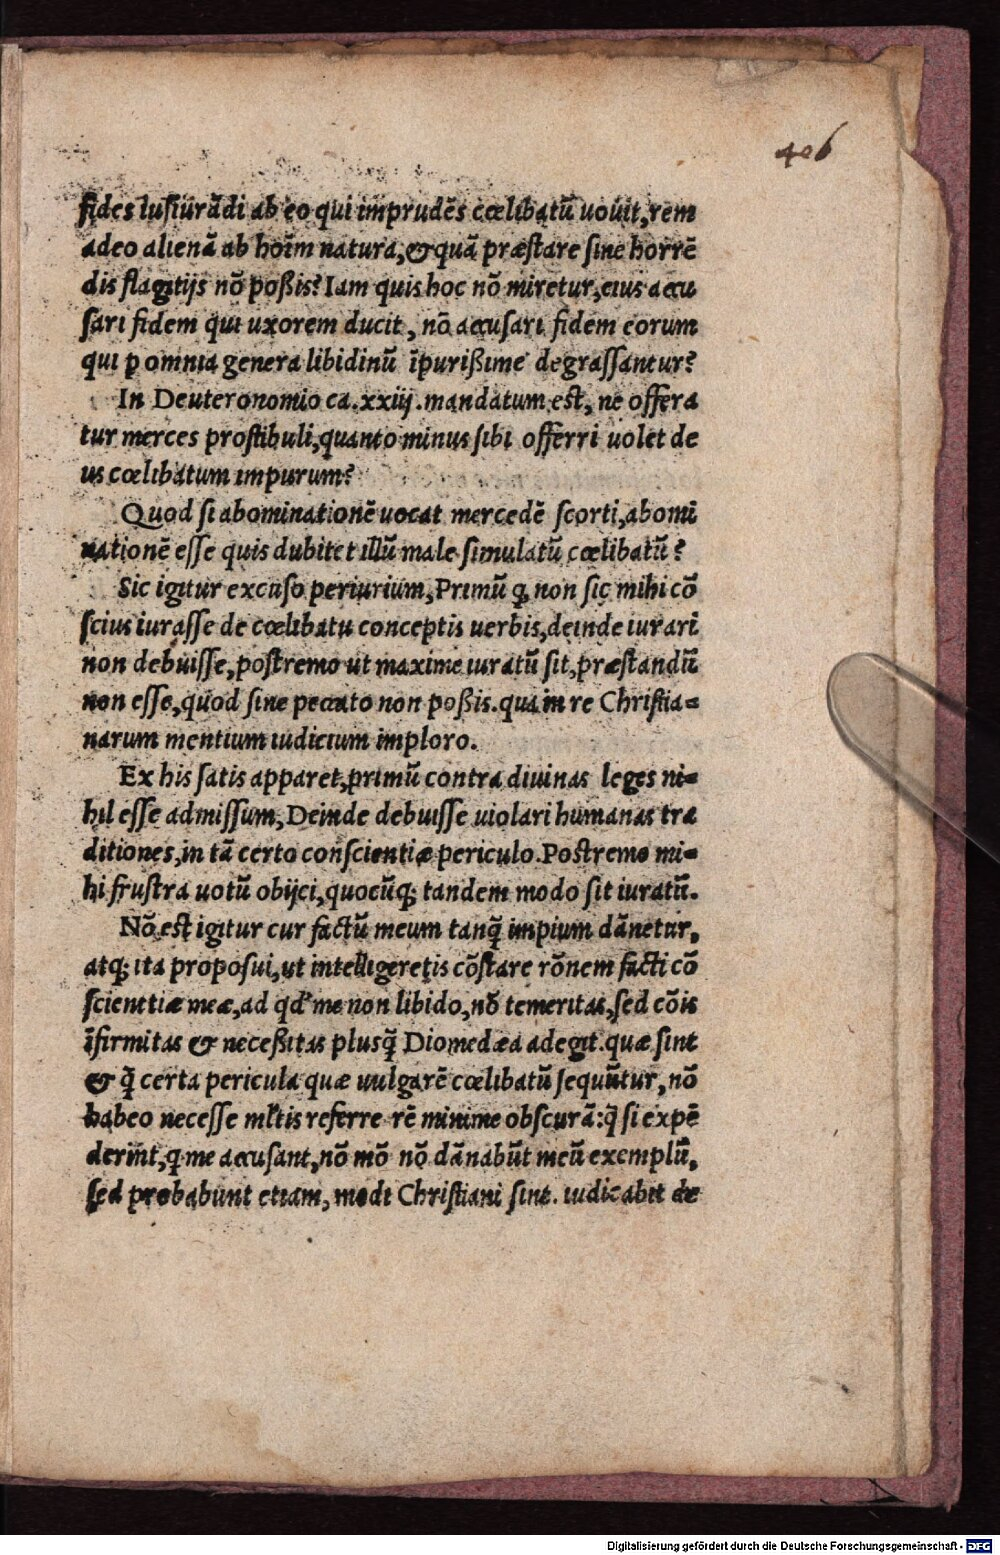 406
fides Iusiurādi ab eo qui imprudēs cœlibatū uouit, rem
adeo alienā ab hoīm natura, & quā præstare sine horrē
dis flagitijs nō poßis? Iam quis hoc nō miretur, eius accu
sari fidem qui uxorem ducit, nō accusari fidem eorum
qui p omnia genera libidinū īpurißime degrassantur?
In Deuteronomio ca. xxiij. mandatum est, ne offera
tur merces prostibuli, quanto minus sibi offerri uolet de
us cœlibatum impurum?
Quod si abominationē uocat mercedē scorti, abomi
nationē esse quis dubitet illū male simulatū cœlibatū?
Sic igitur excuso periurium, Primū q, non sic mihi cō
scius iurasse de cœlibatu conceptis uerbis, deinde iurari
non debuisse, postremo ut maxime iuratū sit, præstandū
non esse, quod sine peccato non poßis. qua in re Christia=
narum mentium iudicium imploro.
Ex his satis apparet, primū contra diuinas leges ni=
hil esse admissum, Deinde debuisse uiolari humanas tra
ditiones, in tā certo conscientiæ periculo. Postremo mi=
hi frustra uotū obijci, quocūq; tandem modo sit iuratū.
Nō est igitur cur factū meum tanq̄ impium dānetur,
atq; ita proposui, ut intelligeretis cōstare rōnem facti cō
scientiæ meæ, ad qd' me non libido, nō temeritas, sed cōis
īfirmitas & neceßitas plusq̄ Diomedæa adegit. quæ sint
& q̄ certa pericula quæ uulgarē cœlibatū sequūtur, nō
habeo necesse mltis referre rē minime obscurā: q̄ si expē
derint, q me accusant, nō mō nō dānabūt meū exemplū,
sed probabunt etiam, modi Christiani sint. iudicabit de
Digitalisierung gefördert durch die Deutsche Forschungsgemeinschaft - DFG